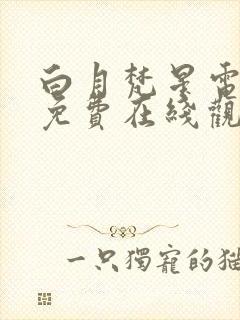 白月梵星電
免費在綫觀
一只獨寵的猫